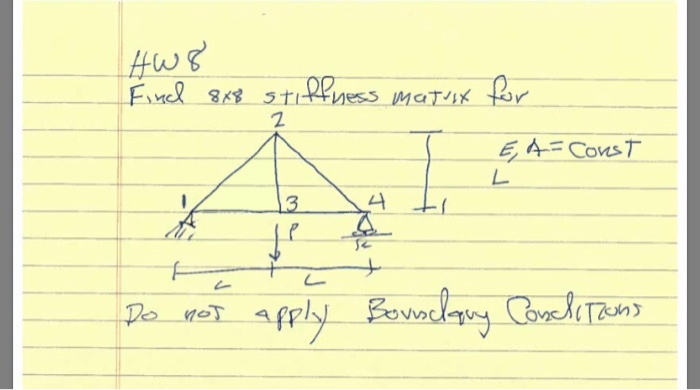 HW8
Find 8x8 stiffness matrix for
2
E, A = Const
L
1 3 4
P
L L
Do not apply Boundary Conditions